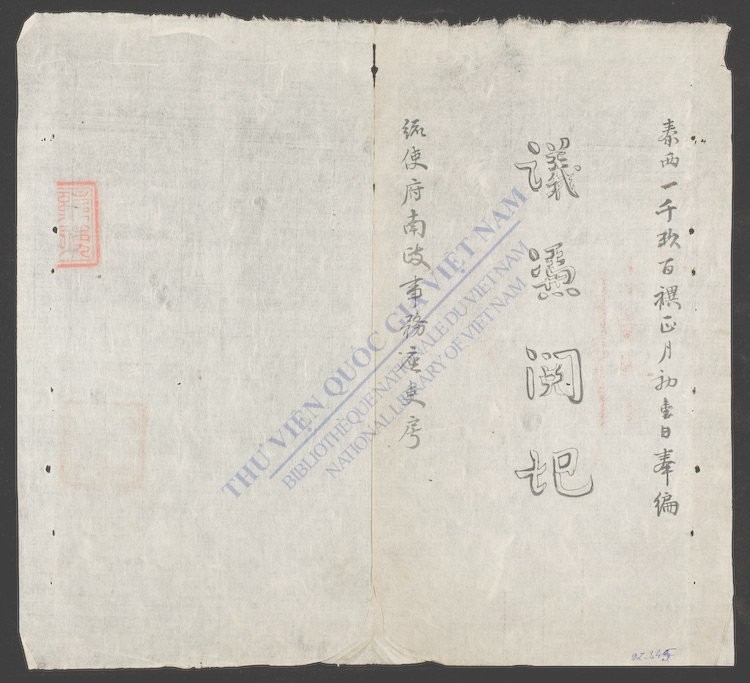 泰西一千玖百禩正月初壹日奉編
議
統使府南政事務座吏房
THƯ VIỆN QUỐC GIA VIỆT NAM
BIBLIOTHÈQUE NATIONALE DU VIETNAM
NATIONAL LIBRARY OF VIETNAM